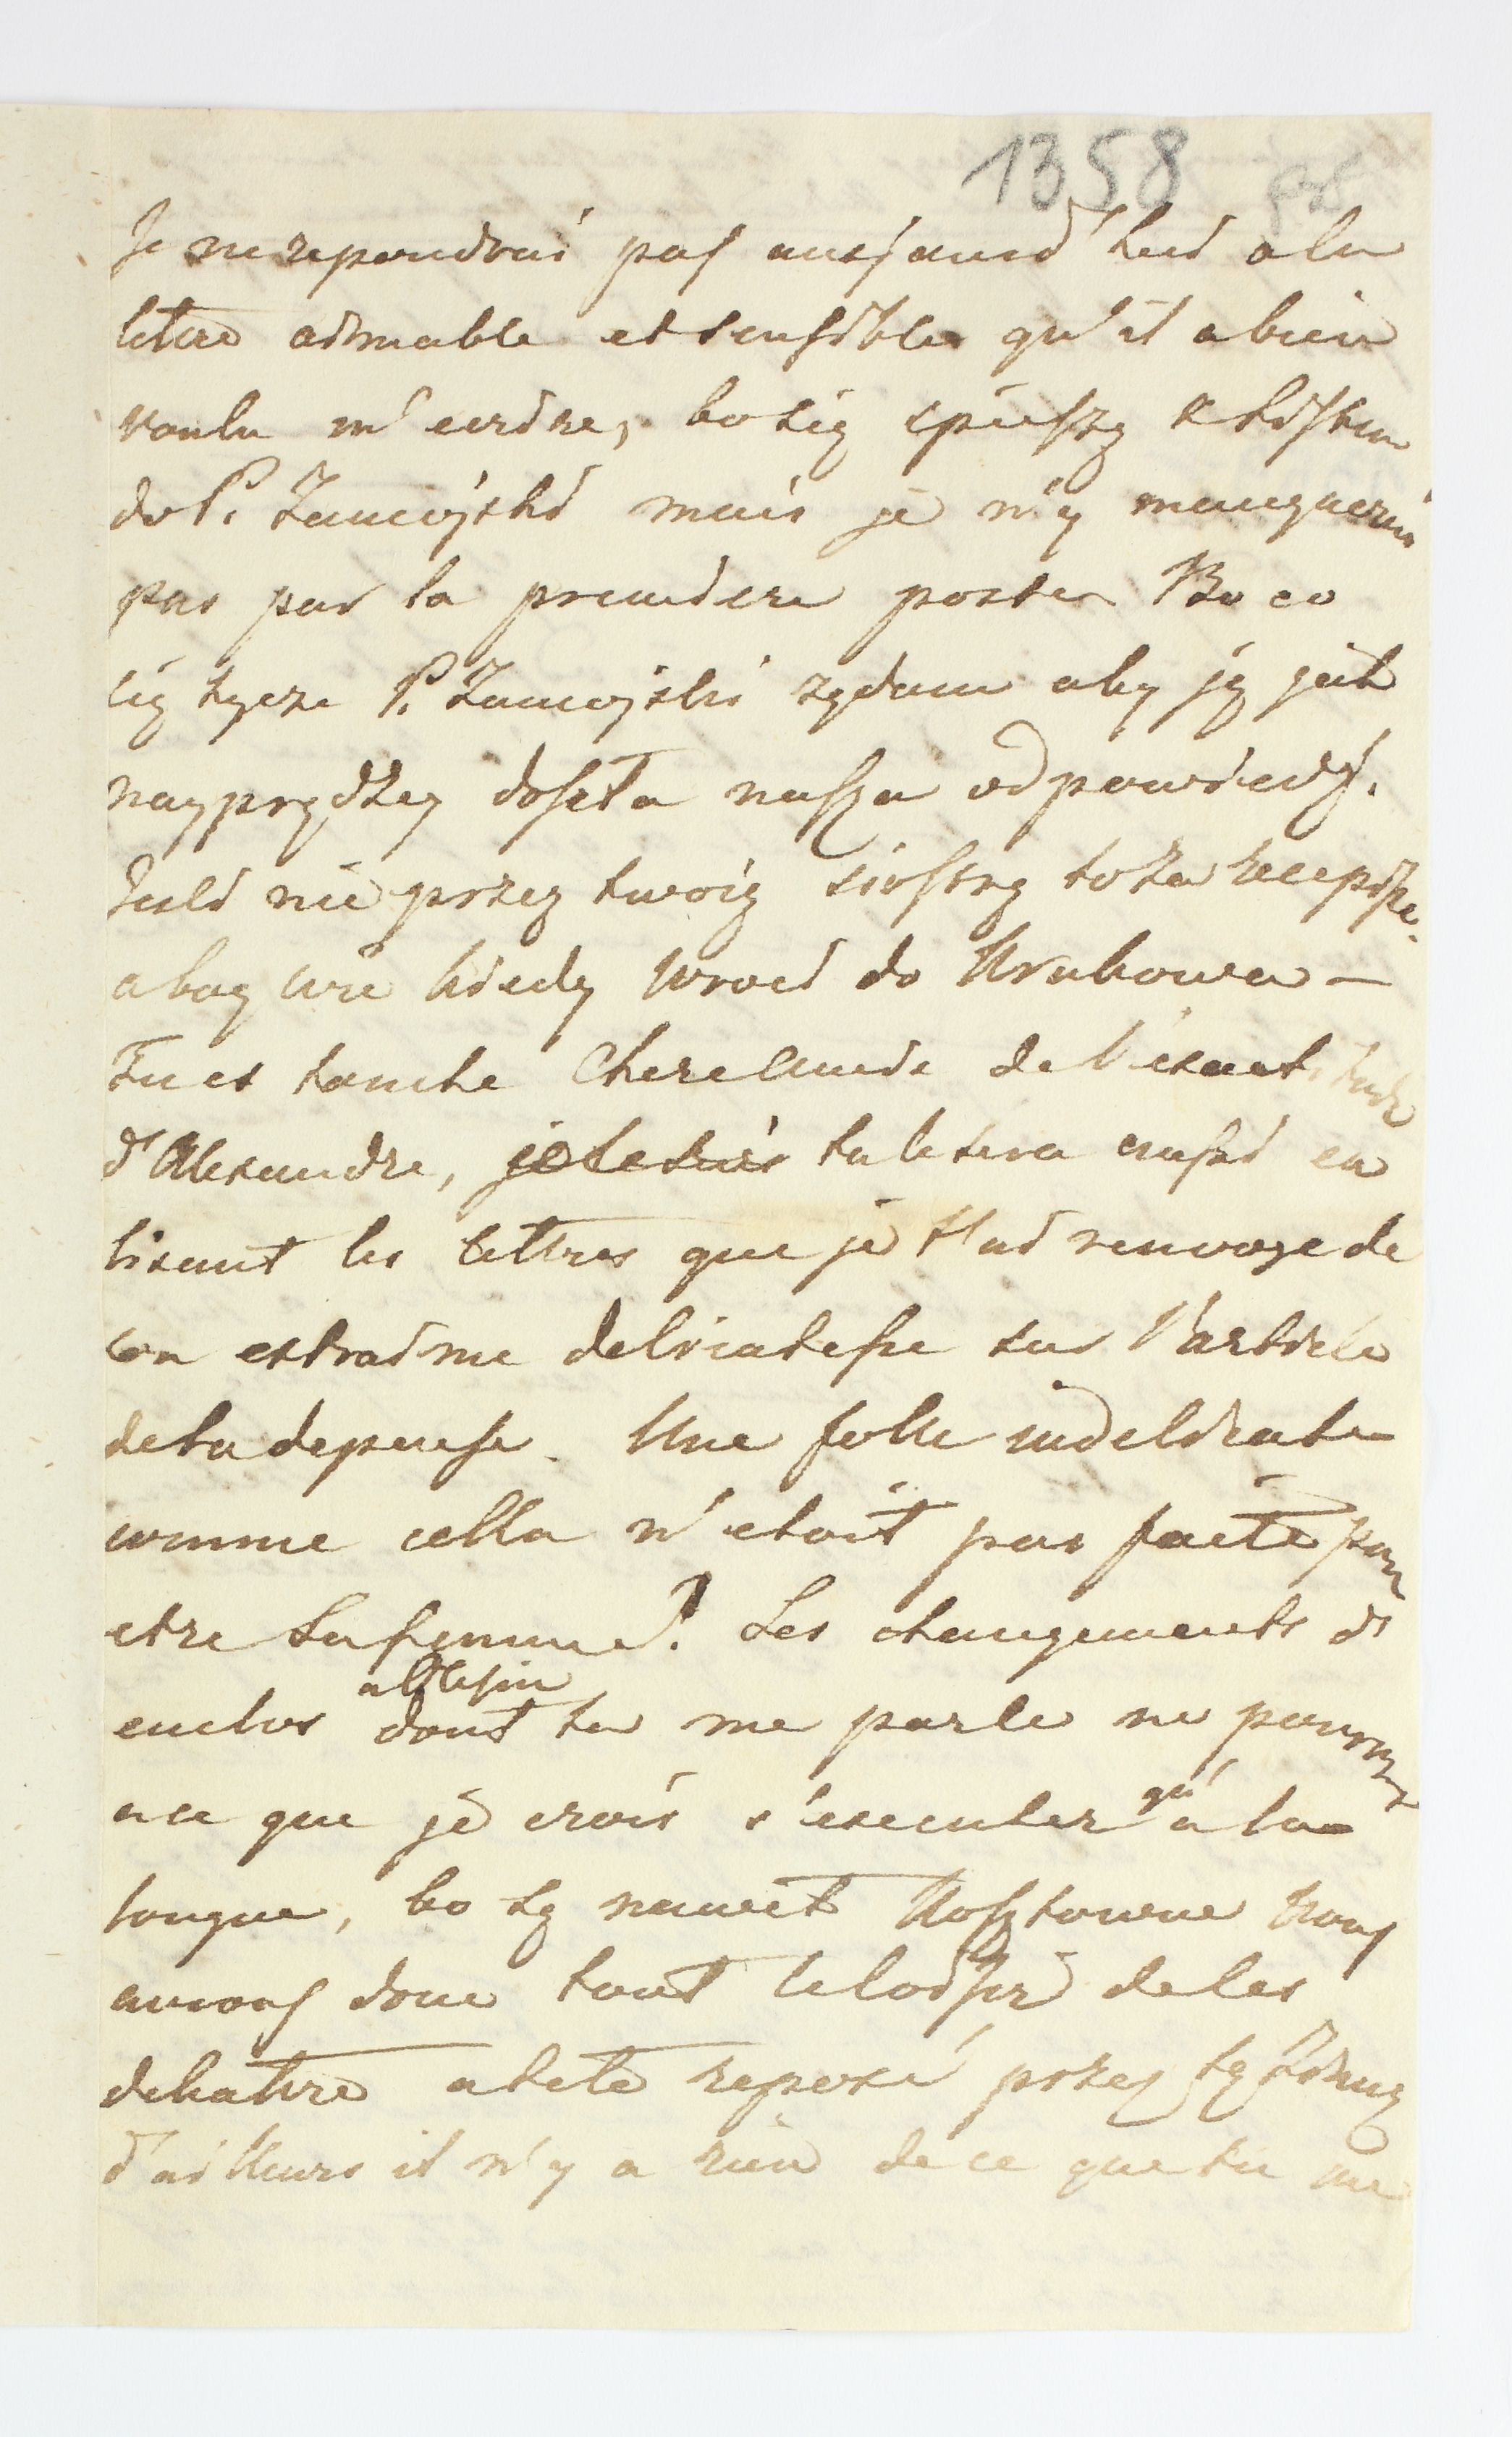 1358
Je ne repondrai pas aujourd'hui a la
letre aimable et sensible qu'il a bien
voulu m'ecrire, bo się spieszę z listem
do P. Zamojski mais je n'y manquerai
pas par la premiere poste. Bo co
się tycze P. Zamojski rządam aby ją jak
nayprędzey doszła nasza odpowiedź.
Jesli nie przez twoią siostrę to za
a bog wie kiedy wroci do Krakowa —
Tu es touche Chere Amie de l'exactitude
d'Alexandre, je le suis tu le sera aussi en
lisant les lettres que je t'ai renvoye de
son extraime delicatesse sur l'article
de ta depense. Une folle indelicate
comme cella n'etoit pas faite pour
etre sa femme! Les changements d'
enclos a Olesin dont tu me parle ne pourront
a ce que je crois s'executer qu'a la
longue, bo są nawet kosztowne nous
aurons donc tout le loisir de les
debattre a tete reposé przez tę zimę
d'ailleurs il n'y a rien de ce que tu me